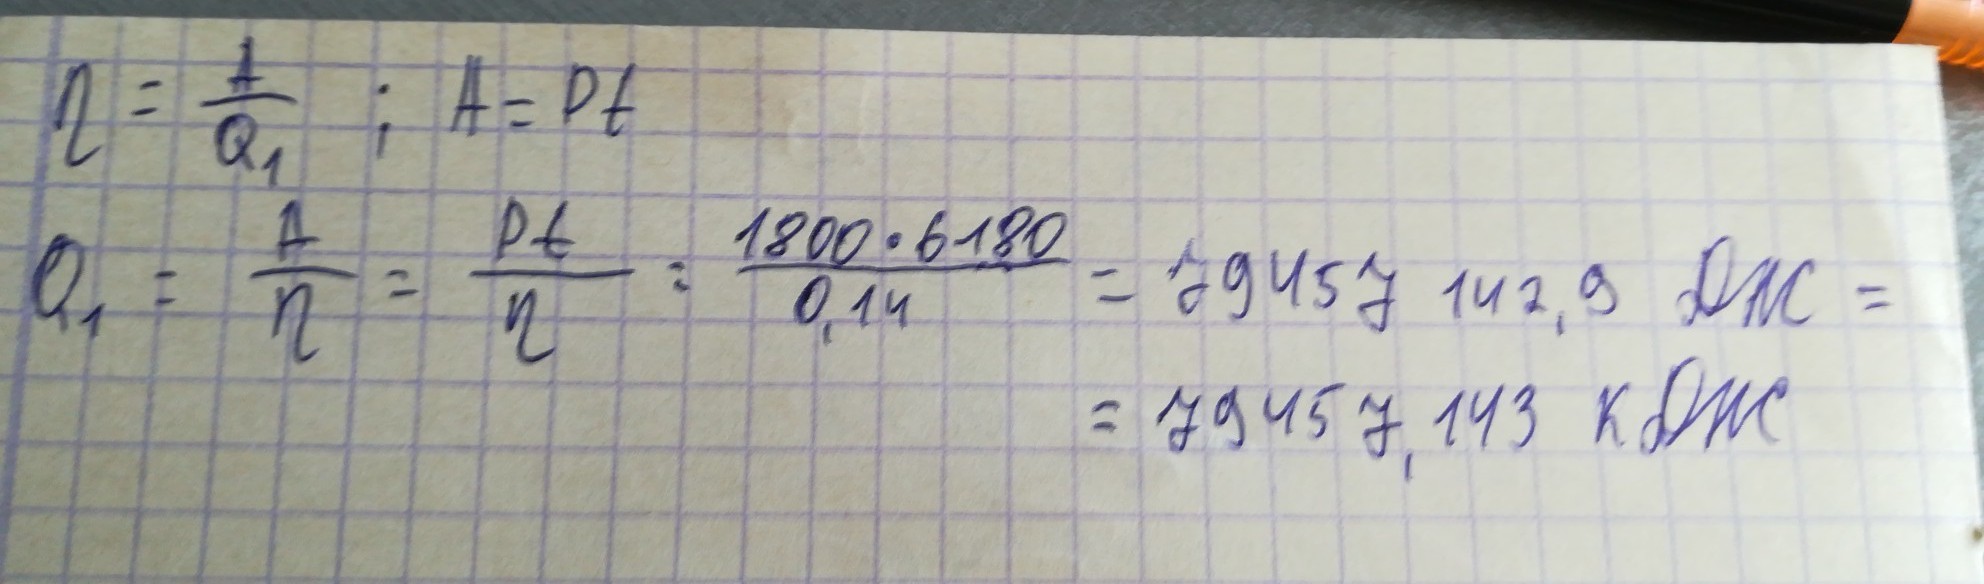 η = A/Q₁ ; A = Pt
Q₁ = A/η = Pt/η = 1800·6180/0,14 = 79457 142,9 Дж =
= 79457,143 кДж